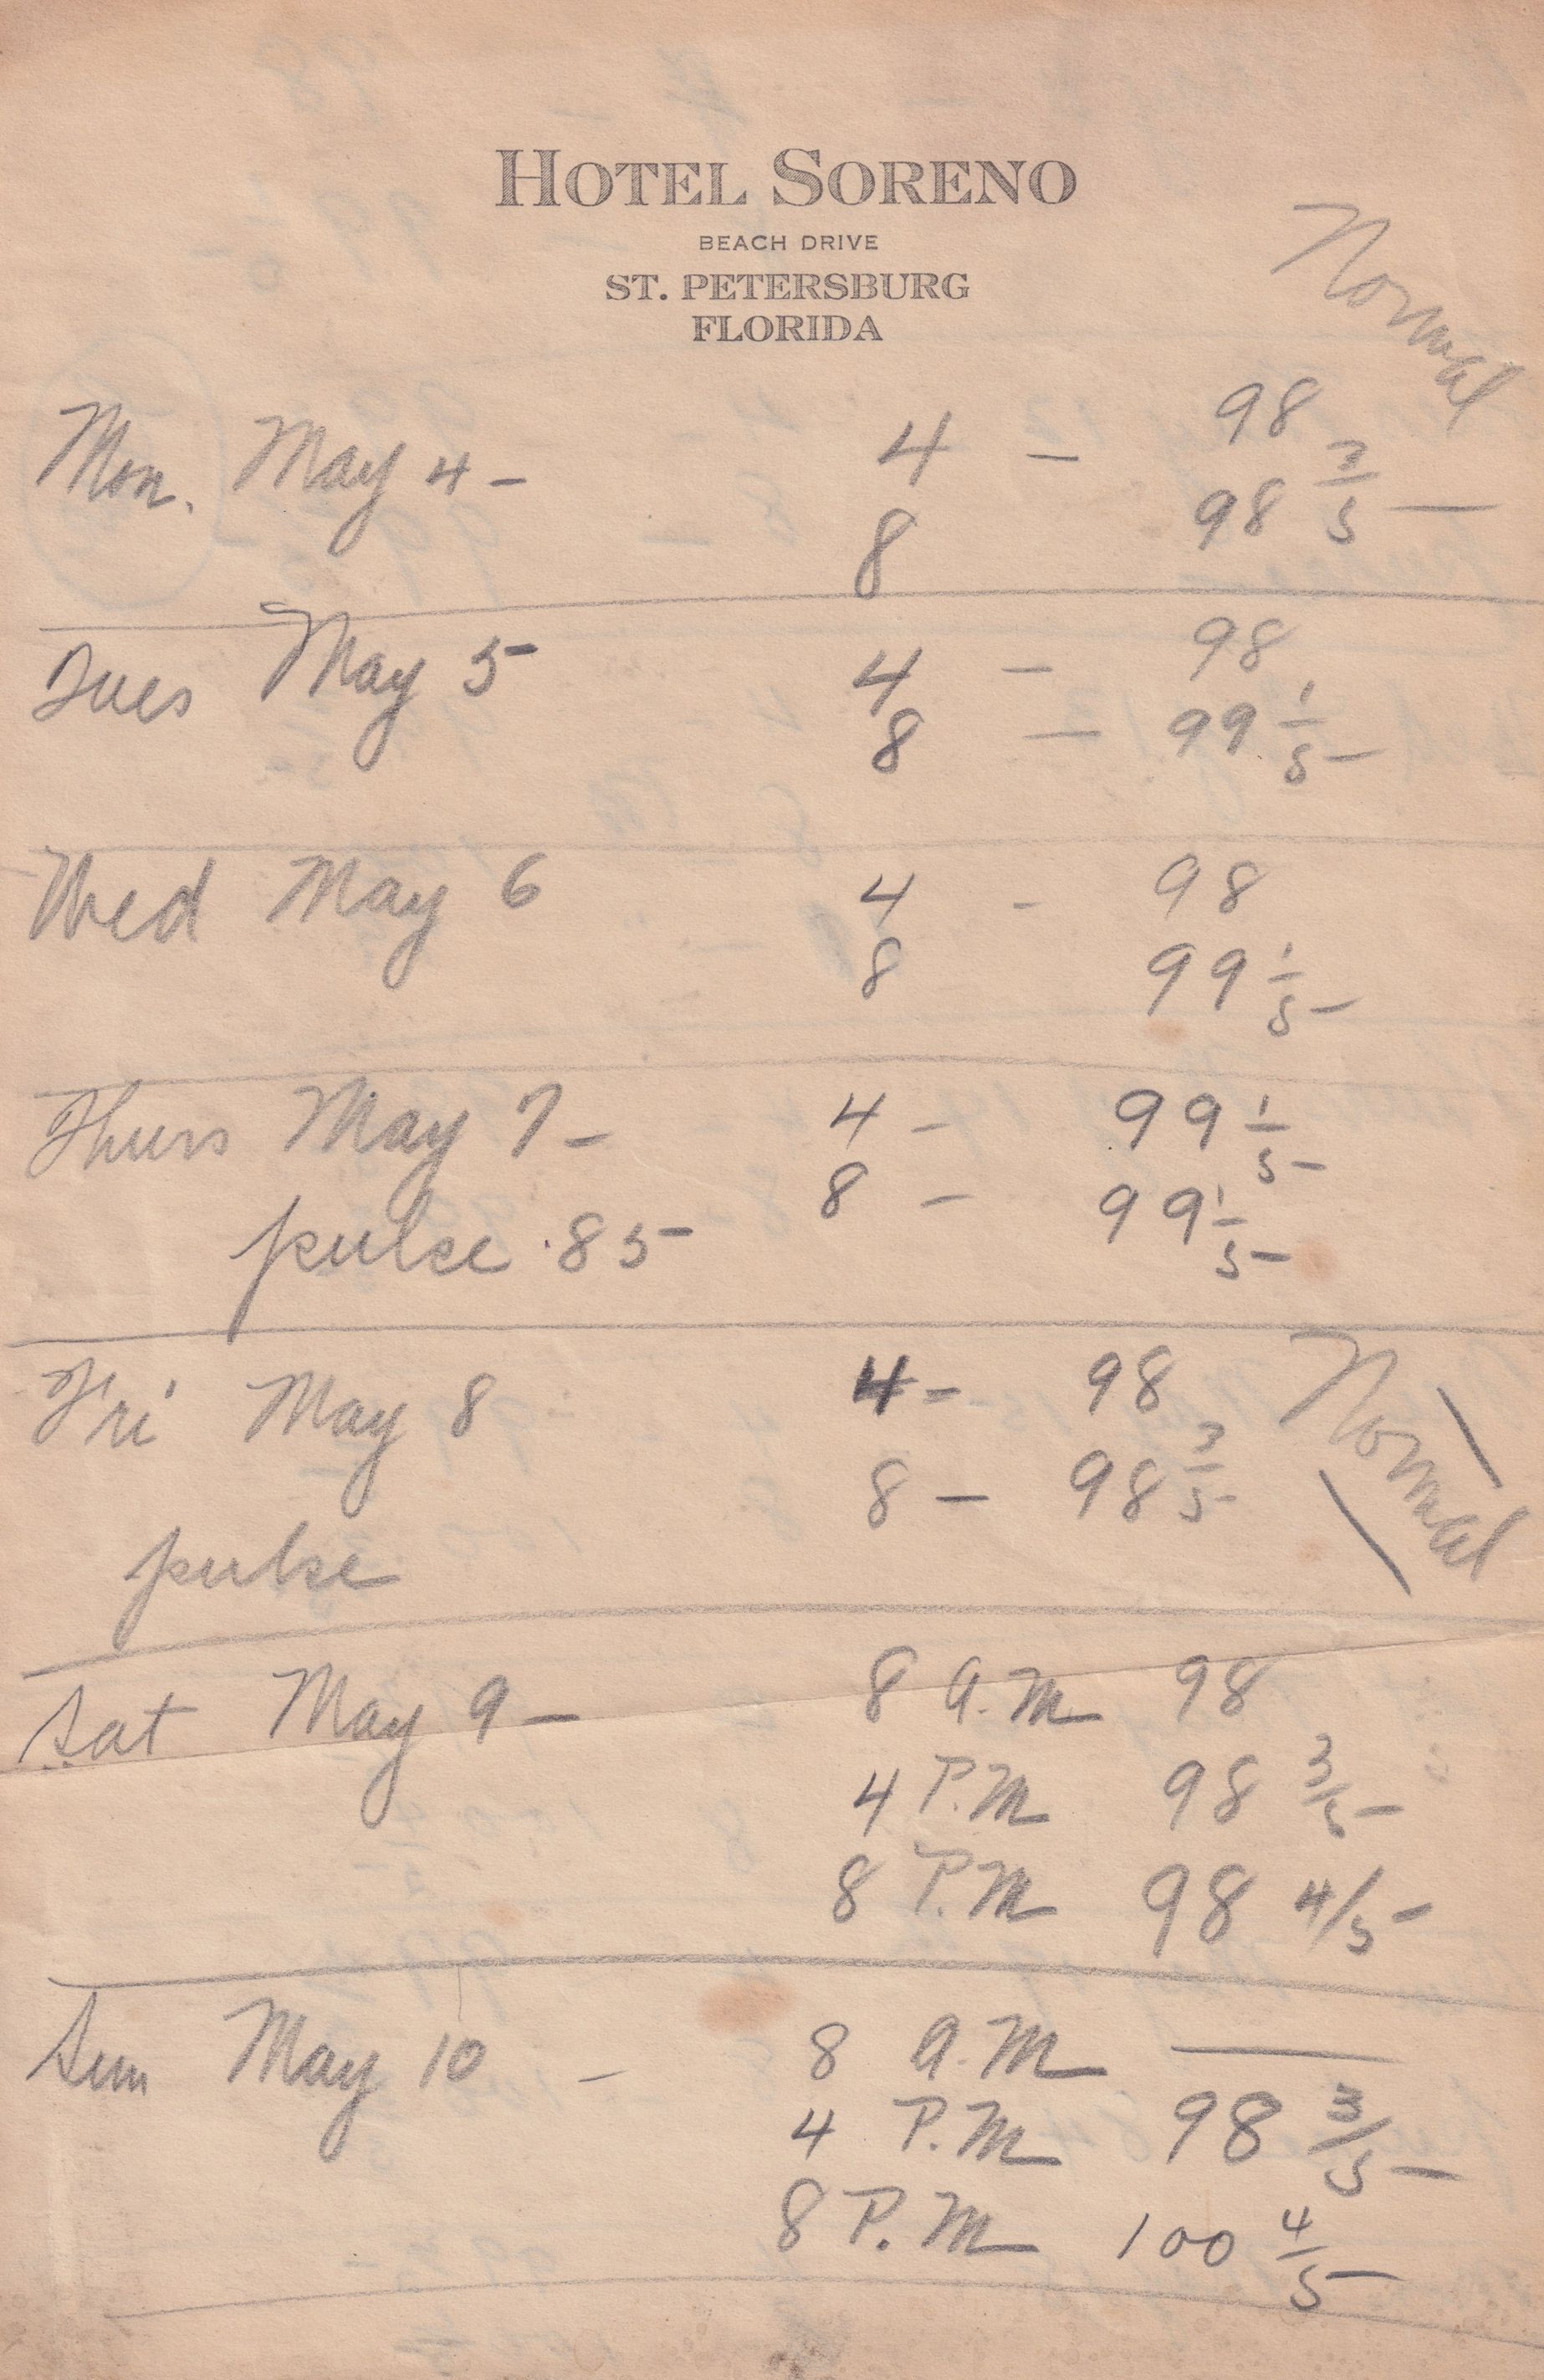 HOTEL SORENO
BEACH DRIVE
ST. PETERSBURG
FLORIDA
Normal
Mon. May 4 - 4 - 98
8 98 3/5
Tues May 5 4 - 98
8 - 99 1/5
Wed May 6 4 - 98
8 99 1/5
Thurs May 7 - 4 - 99 1/5
8 - 99 1/5
pulse 85
Fri May 8 4 - 98 Normal
8 - 98 3/5
pulse
Sat May 9 - 8 A.M 98
4 P.M 98 3/5
8 P.M 98 4/5
Sun May 10 - 8 A.M —
4 P.M 98 3/5
8 P.M 100 4/5